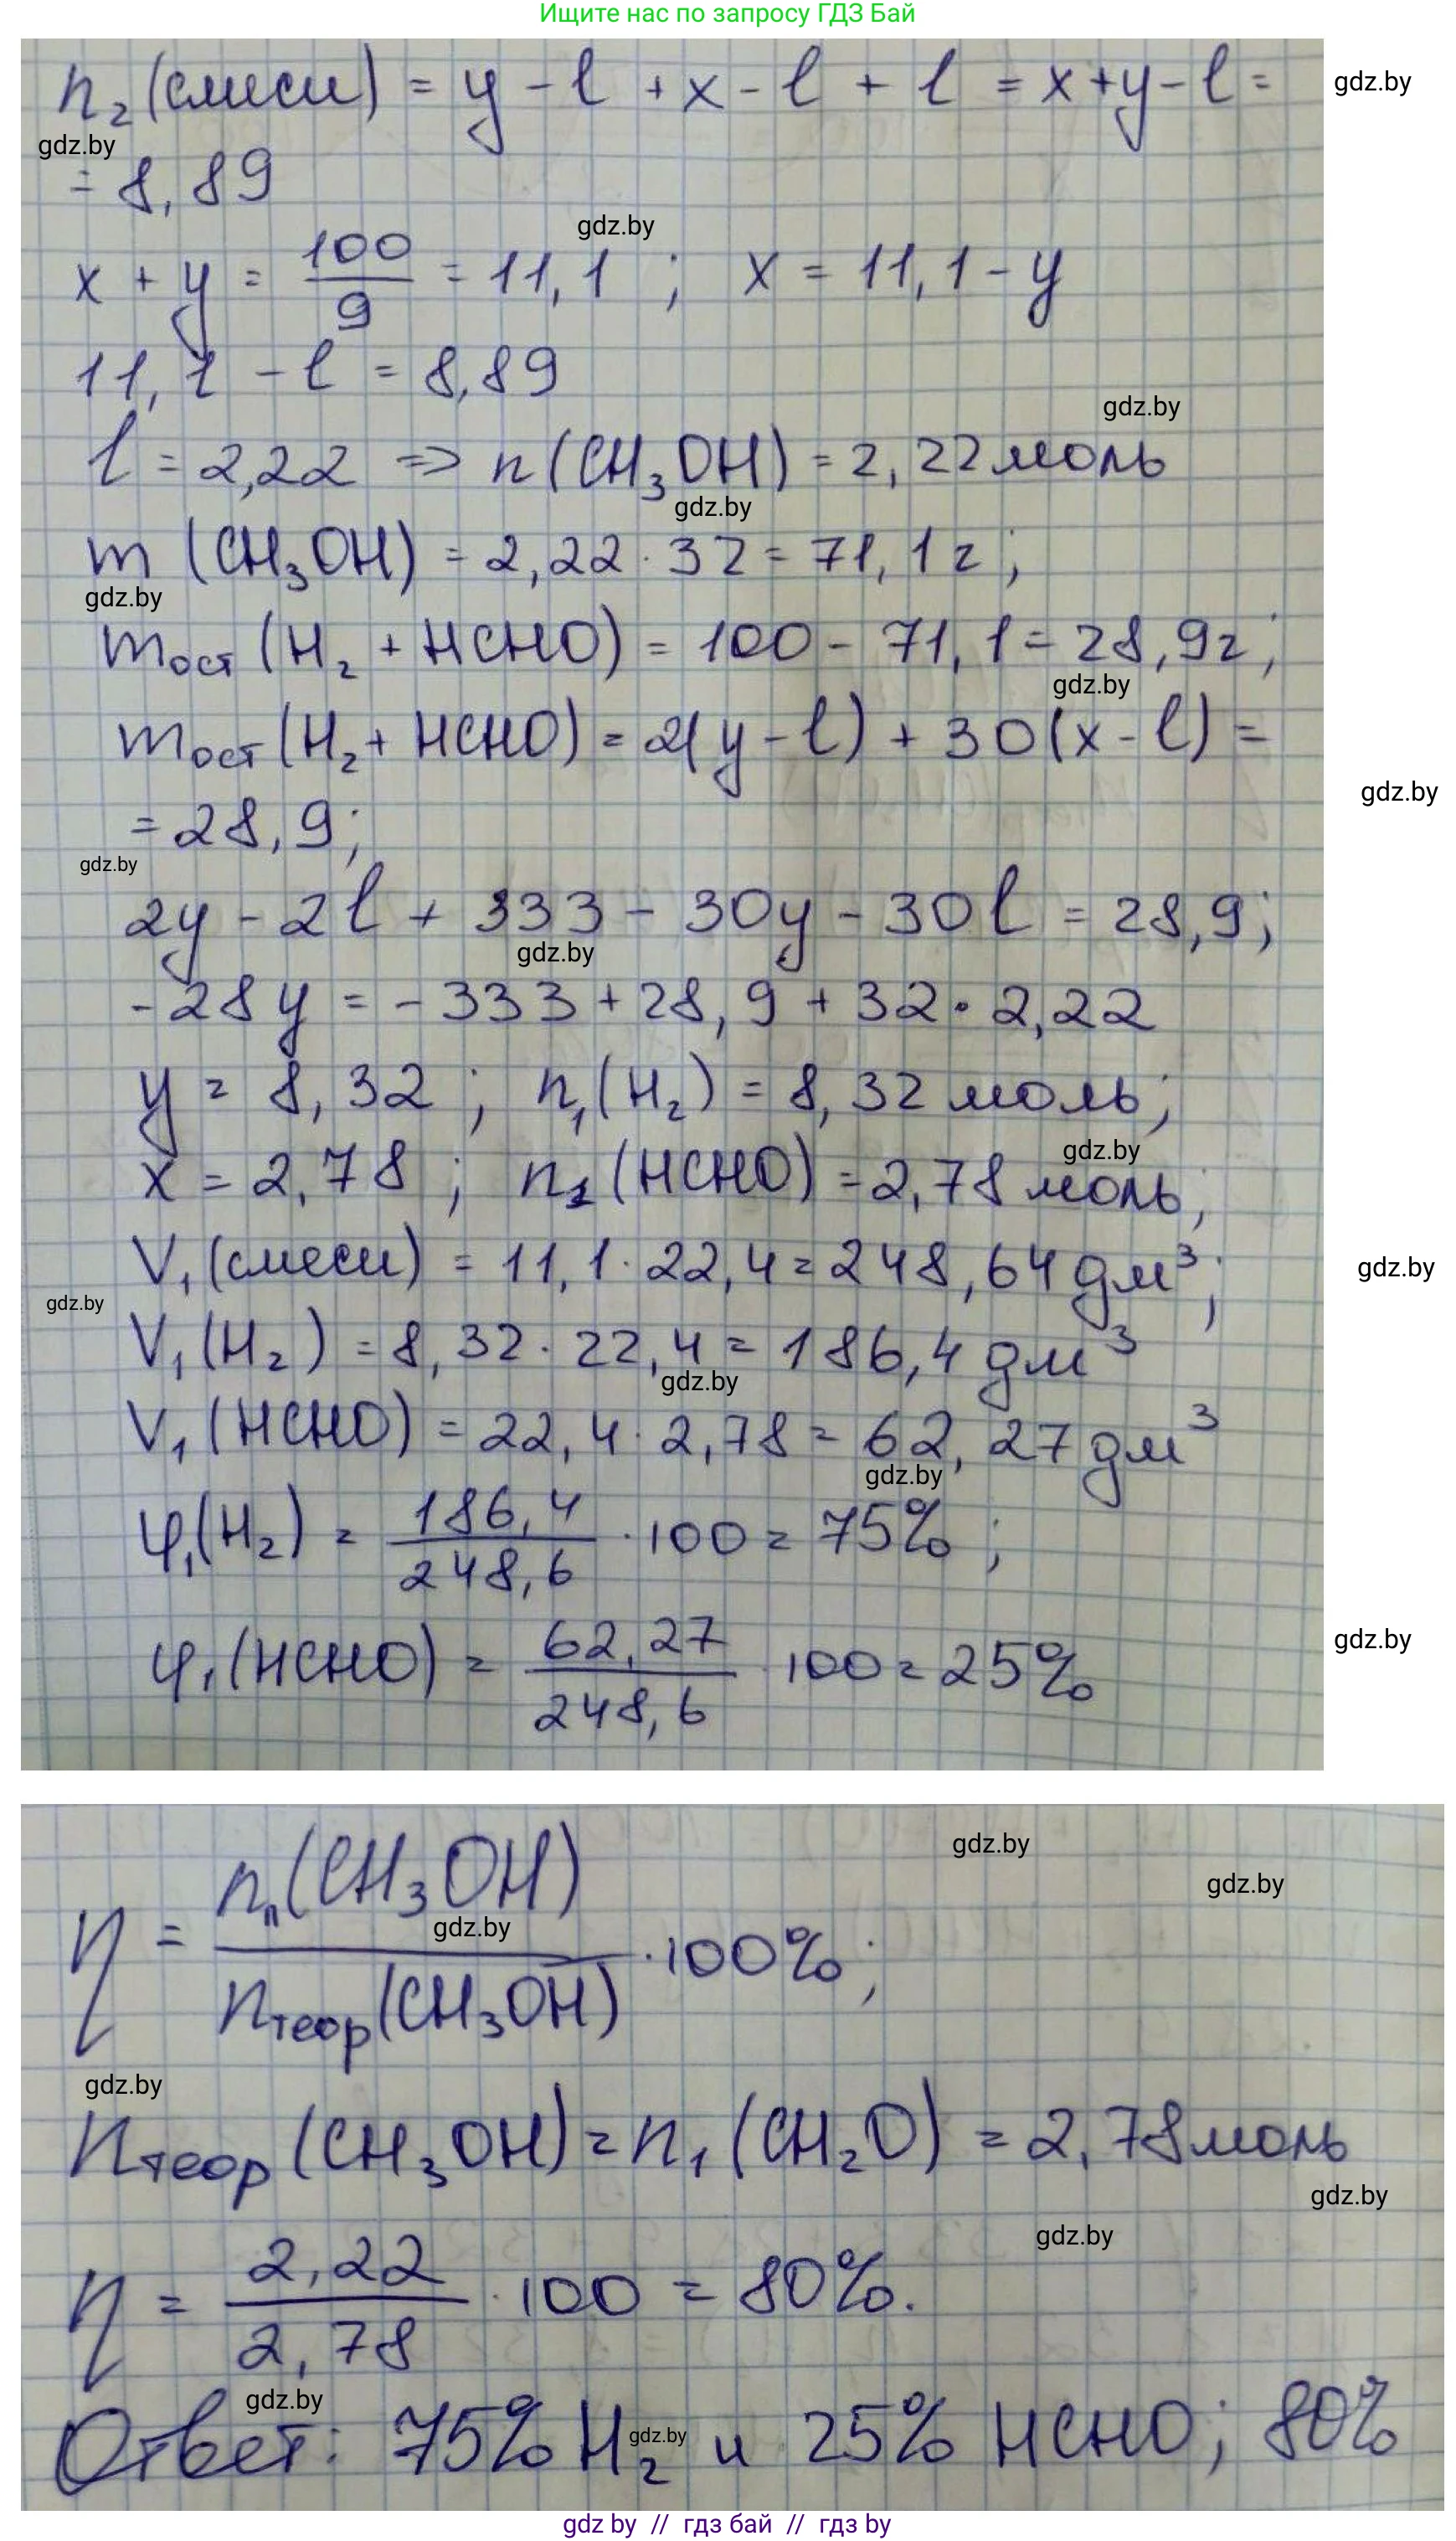 Ищите нас по запросу ГДЗ Бай
n₂(смеси) = y - l + x - l + l = x+y-l =
gdz.by
gdz.by
= 8,89
gdz.by
x + y = 100/9 = 11,1 ; x = 11,1 - y
11,1 - l = 8,89
gdz.by
l = 2,22 => n(CH₃OH) = 2,22 моль
gdz.by
m (CH₃OH) = 2,22 · 32 = 71,1 г ;
gdz.by
mост (H₂ + HCHO) = 100 - 71,1 = 28,9г;
gdz.by
mост (H₂ + HCHO) = 2(y - l) + 30(x - l) =
gdz.by
= 28,9;
gdz.by
2y - 2l + 333 - 30y - 30l = 28,9;
gdz.by
-28y = -333 + 28,9 + 32 · 2,22
y = 8,32 ; n₁(H₂) = 8,32 моль;
gdz.by
x = 2,78 ; n₁(HCHO) = 2,78 моль;
V₁(смеси) = 11,1 · 22,4 = 248,64 дм³;
gdz.by
gdz.by
V₁(H₂) = 8,32 · 22,4 = 186,4 дм³
gdz.by
V₁(HCHO) = 22,4 · 2,78 = 62,27 дм³
gdz.by
φ₁(H₂) = 186,4/248,6 · 100 = 75% ;
φ₁(HCHO) = 62,27/248,6 100 = 25%
gdz.by
gdz.by
gdz.by
η = nп(CH₃OH)/nтеор(CH₃OH) · 100%;
gdz.by
gdz.by
nтеор(CH₃OH) = n₁(CH₂O) = 2,78моль
gdz.by
gdz.by
η = 2,22/2,78 · 100 = 80%.
gdz.by
Ответ: 75% H₂ и 25% HCHO; 80%
gdz.by
gdz by // гдз бай // гдз by